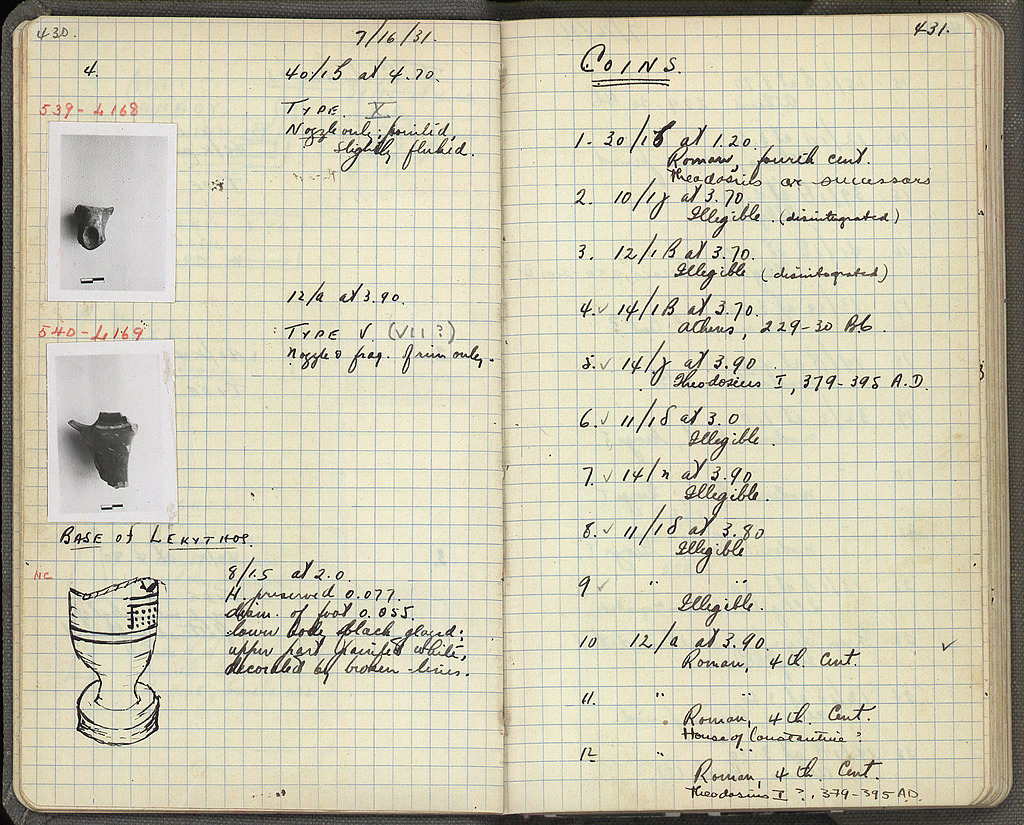 430.
7/16/31.
4.
40/1Б at 4.70.
539-L168
TYPE. X
Nozzle only; pointed,
slightly fluked.
12/a at 3.90.
540-L169
TYPE V. (VII?)
nozzle & frag. of rim only.
BASE OF LEKYTHOS.
NC
8/15 at 2.0.
H. preserved 0.077.
diam. of foot 0.055.
lower body black glazed;
upper part painted white,
decorated by broken lines.
431.
COINS.
1. 30/1Б at 1.20.
Roman, fourth cent.
Theodosius or successors
2. 10/1γ at 3.70
Illegible. (disintegrated)
3. 12/1B at 3.70.
Illegible (disintegrated)
4. ✓ 14/1B at 3.70
Athens, 229-30 BC.
5. ✓ 14/γ at 3.90
Theodosius I, 379-395 A.D.
6. ✓ 11/1δ at 3.0
Illegible.
7. ✓ 14/n at 3.90
Illegible.
8. ✓ 11/1δ at 3.80
Illegible
9 ✓ " "
Illegible.
10 12/a at 3.90. ✓
Roman, 4th Cent.
11. " "
Roman, 4th Cent.
House of Constantine?
12 " "
Roman, 4th Cent.
Theodosius I?, 379-395 AD.